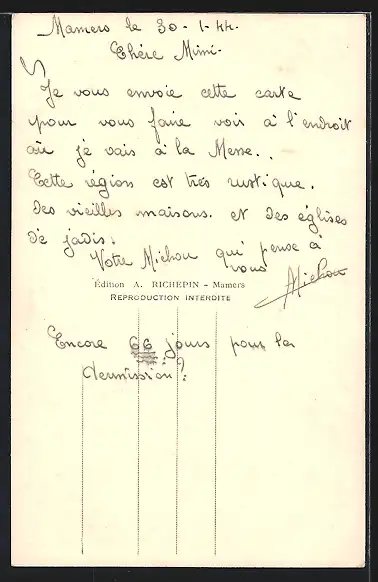 Mamers le 30-1-44.
Chère Mimi-
Je vous envoie cette carte
pour vous faire voir à l'endroit
où je vais à la Messe..
Cette région est très rustique.
des vieilles maisons. et des églises
de jadis.
Votre Michou qui pense à
vous
Michou
Édition A. RICHEPIN - Mamers
REPRODUCTION INTERDITE
Encore 66 jours pour la
permission?